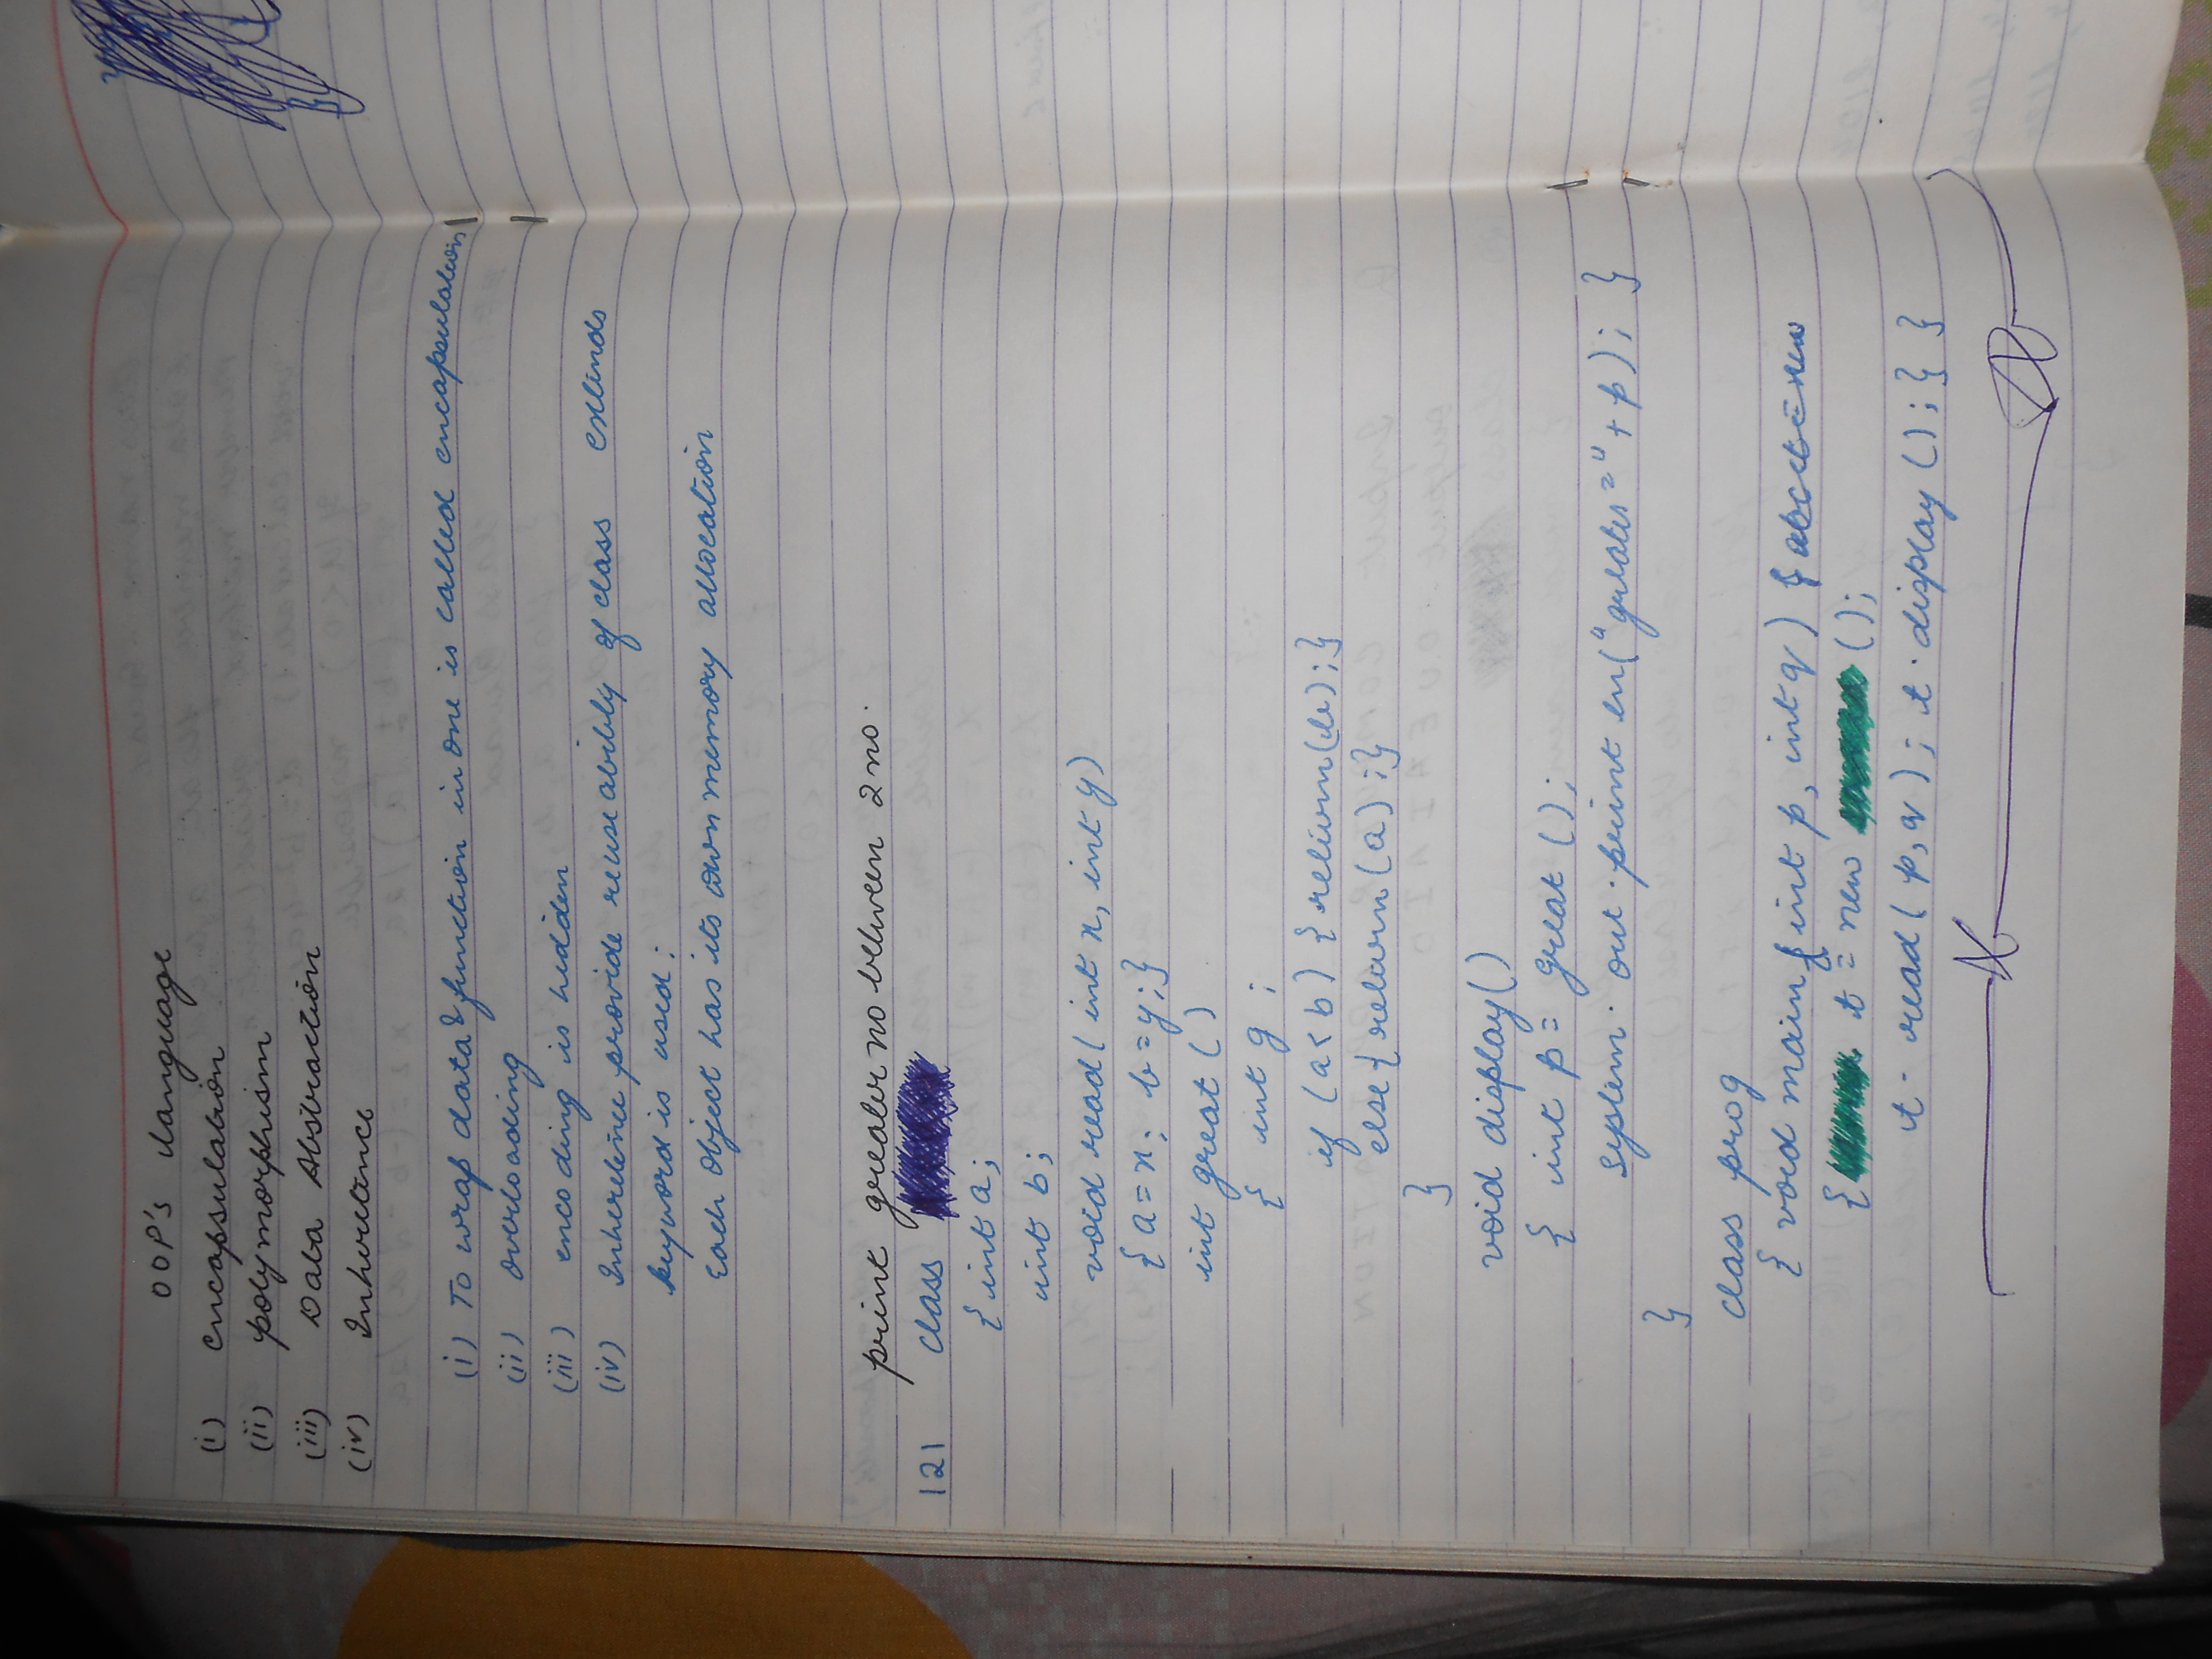 OOP's language
(i) encapsulation
(ii) polymorphism
(iii) Data Abstraction
(iv) Inheretence
(i) To wrap data & function in one is called encapsulation
(ii) overloading
(iii) encoding is hedden
(iv) Inheretence provide reuseability of class extends
keyword is used;
Each object has its own memory allocation
print greater no between 2 no.
121 class
{ int a;
int b;
void read( int x, int y)
{ a=x; b=y;}
int great ()
{ int g ;
if (a<b) {return(b);}
else{return(a);}
}
void display()
{ int p= great ();
system. out. print ln("greates="+p); }
}
class prog
{ void main( int p, int q)
{ t = new ();
t. read( p,q); t. display (); } }